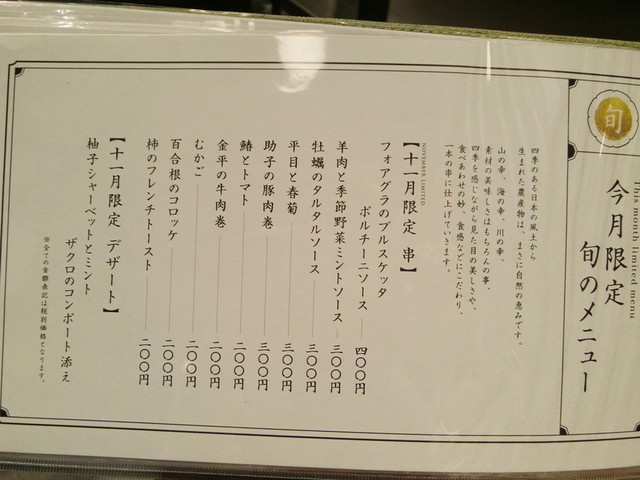 旬
This month limited menu
今月限定
旬のメニュー
四季のある日本の風土から
生まれた農産物は、まさに自然の恵みです。
山の幸、海の幸、川の幸、
素材の美味しさはもちろんの事、
四季を感じながら見た目の美しさや、
食べあわせの妙、食感などにこだわり、
一本の串に仕上げていきます。
NOVEMBER LIMITED
【十一月限定 串】
フォアグラのブルスケッタ
ポルチーニソース 四〇〇円
羊肉と季節野菜ミントソース 三〇〇円
牡蠣のタルタルソース 三〇〇円
平目と春菊 三〇〇円
助子の豚肉巻 三〇〇円
鰆とトマト 二〇〇円
金平の牛肉巻 二〇〇円
むかご 二〇〇円
百合根のコロッケ 二〇〇円
柿のフレンチトースト 二〇〇円
【十一月限定 デザート】
柚子シャーベットとミント
ザクロのコンポート添え
※全ての金額表記は税別価格となります。